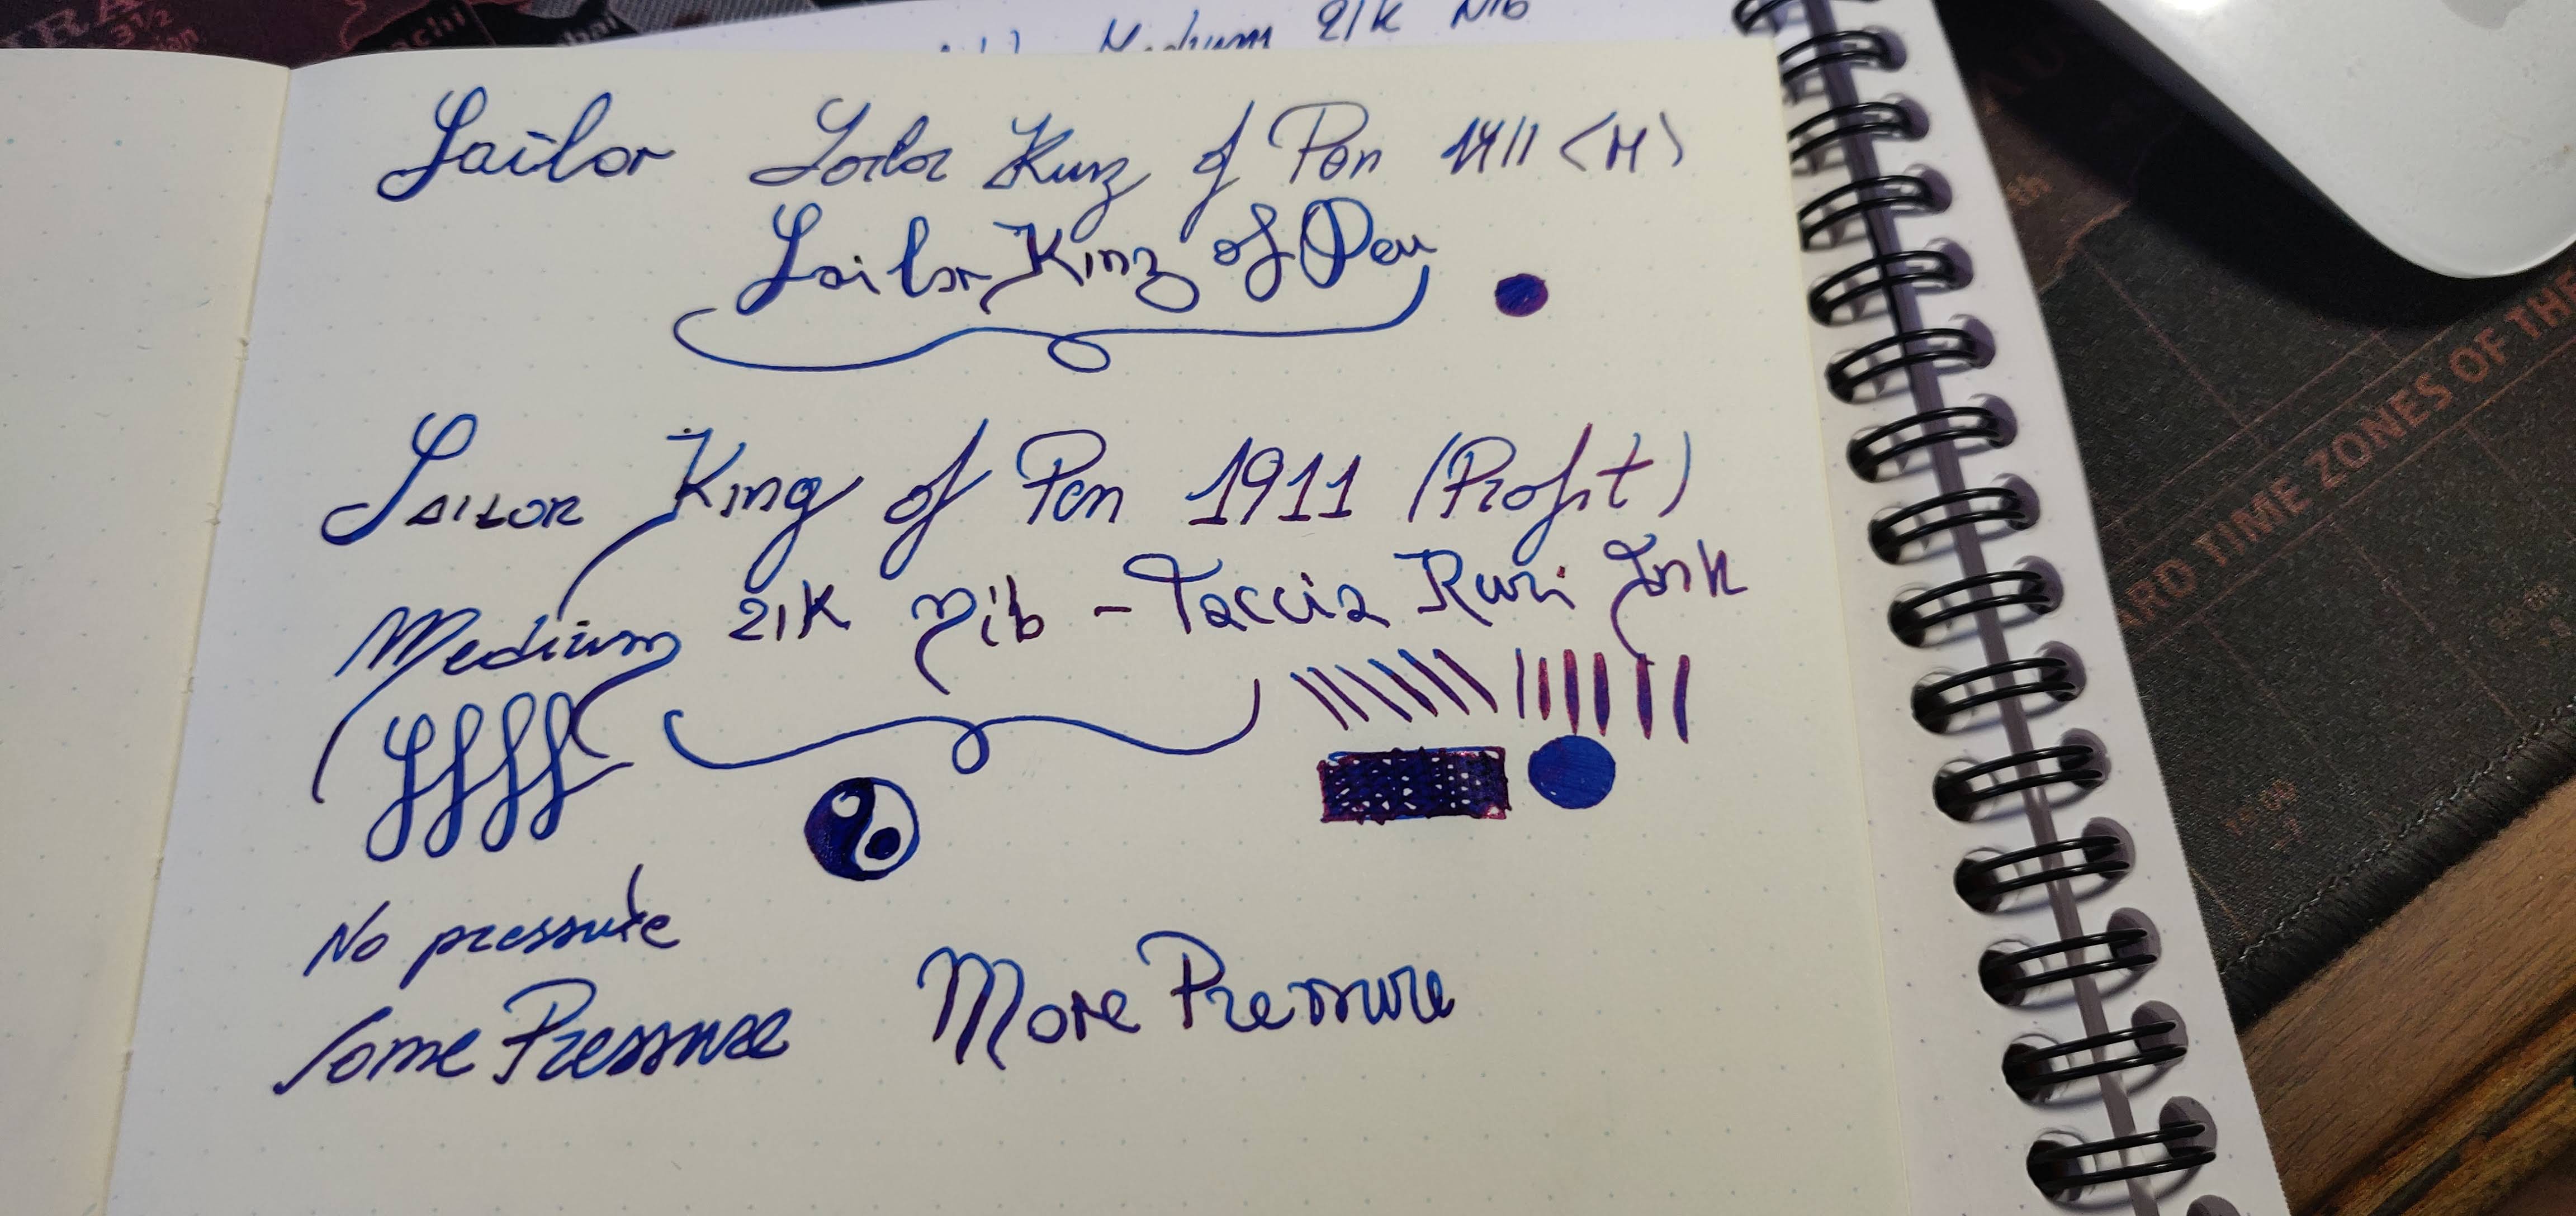 Medium 21K Nib
Sailor Sailor King of Pen 1911 (M)
Sailor King of Pen
Sailor King of Pen 1911 (Profit)
Medium 21K nib - Taccia Ruri Ink
No pressure
Some Pressure More Pressure
ARD TIME ZONES OF THE